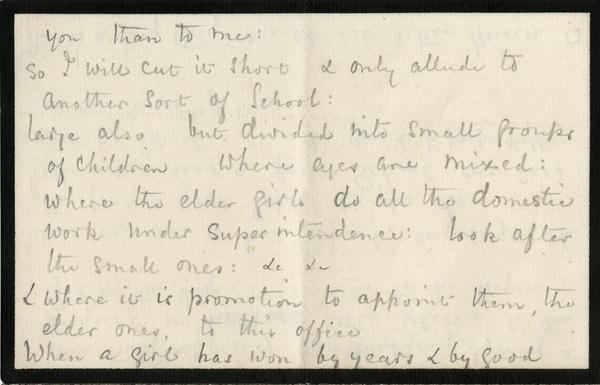 you than to me:
So I will cut it short & only allude to
another sort of School:
large also but divided into small groups
of children where ages are mixed:
where the elder girls do all the domestic
work under superintendence: look after
the small ones: &c &c
& where it is promotion to appoint them, the
elder ones, to this office
When a girl has won by years & by good